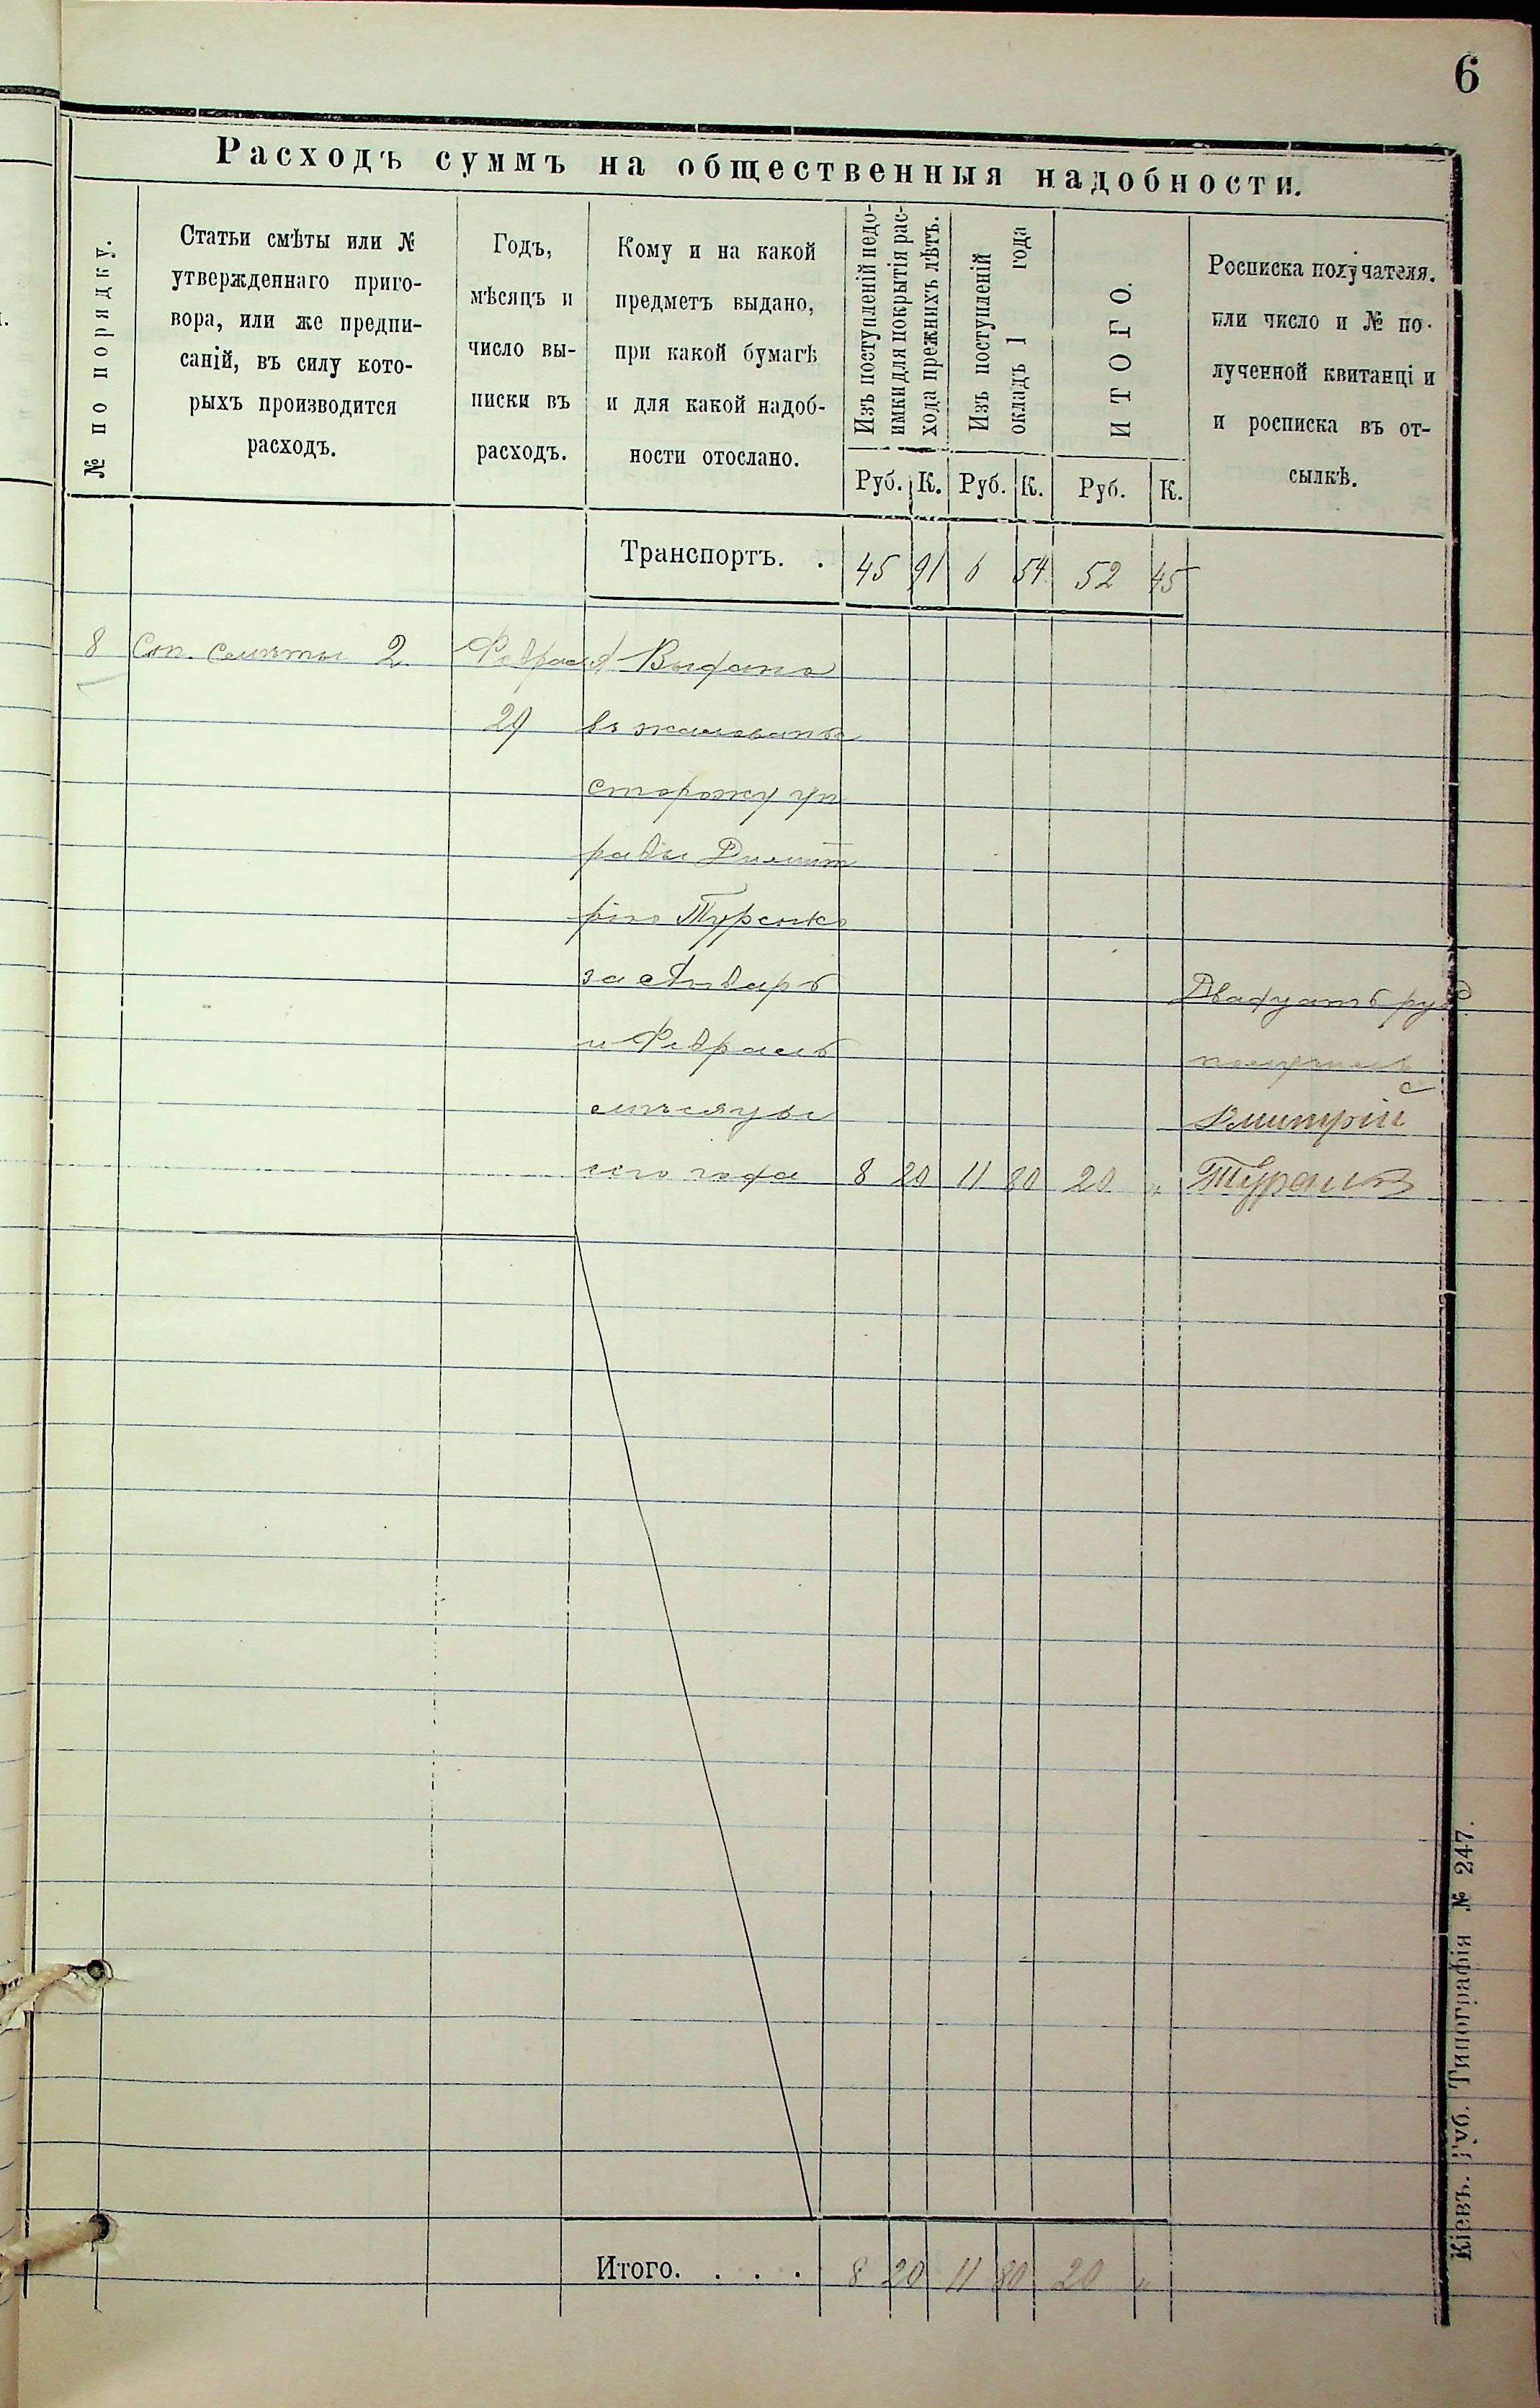 6
Расходъ суммъ на общественныя надобности.
№ по порядку.
Статьи смѣты или №
утвержденнаго приго-
вора, или же предпи-
саній, въ силу кото-
рыхъ производится
расходъ.
Годъ,
мѣсяцъ и
число вы-
писки въ
расходъ.
Кому и на какой
предметъ выдано,
при какой бумагѣ
и для какой надоб-
ности отослано.
Изъ поступленій недо-
имки для покрытія рас-
хода прежнихъ лѣтъ.
Изъ поступленій
окладъ 1 года
ИТОГО.
Росписка получателя.
или число и № по-
лученной квитанціи
и росписка въ от-
сылкѣ.
Руб. К. Руб. К. Руб. К.
Транспортъ. . 45 91 6 54 52 45
8 Ст. смѣты 2 Февраля Выдано
29 въ жалованье
сторожу уп
равы Димит
рію Туренко
за Январь
и Февраль
мѣсяцы
сего года 8 20 11 80 20 „
Двадцать руб.
получилъ
Дмитрій
Итого. . . . 8 20 11 80 20 „
Кіевъ. Губ. Типографія № 247.